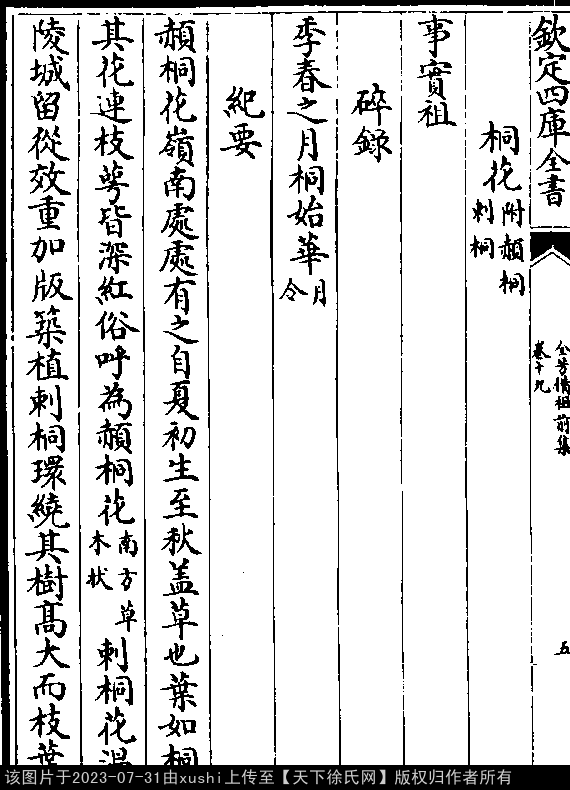 欽定四庫全書
全芳備祖前集
卷十九
五
桐花附赬桐刺桐
事實祖
碎錄
季春之月桐始華月令
紀要
赬桐花嶺南處處有之自夏初生至秋盖草也葉如桐
其花連枝萼皆深紅俗呼為赬桐花南方草木狀刺桐花
陵城留從效重加版築植刺桐環繞其樹髙大而枝葉
该图片于2023-07-31由xushi上传至【天下徐氏网】版权归作者所有